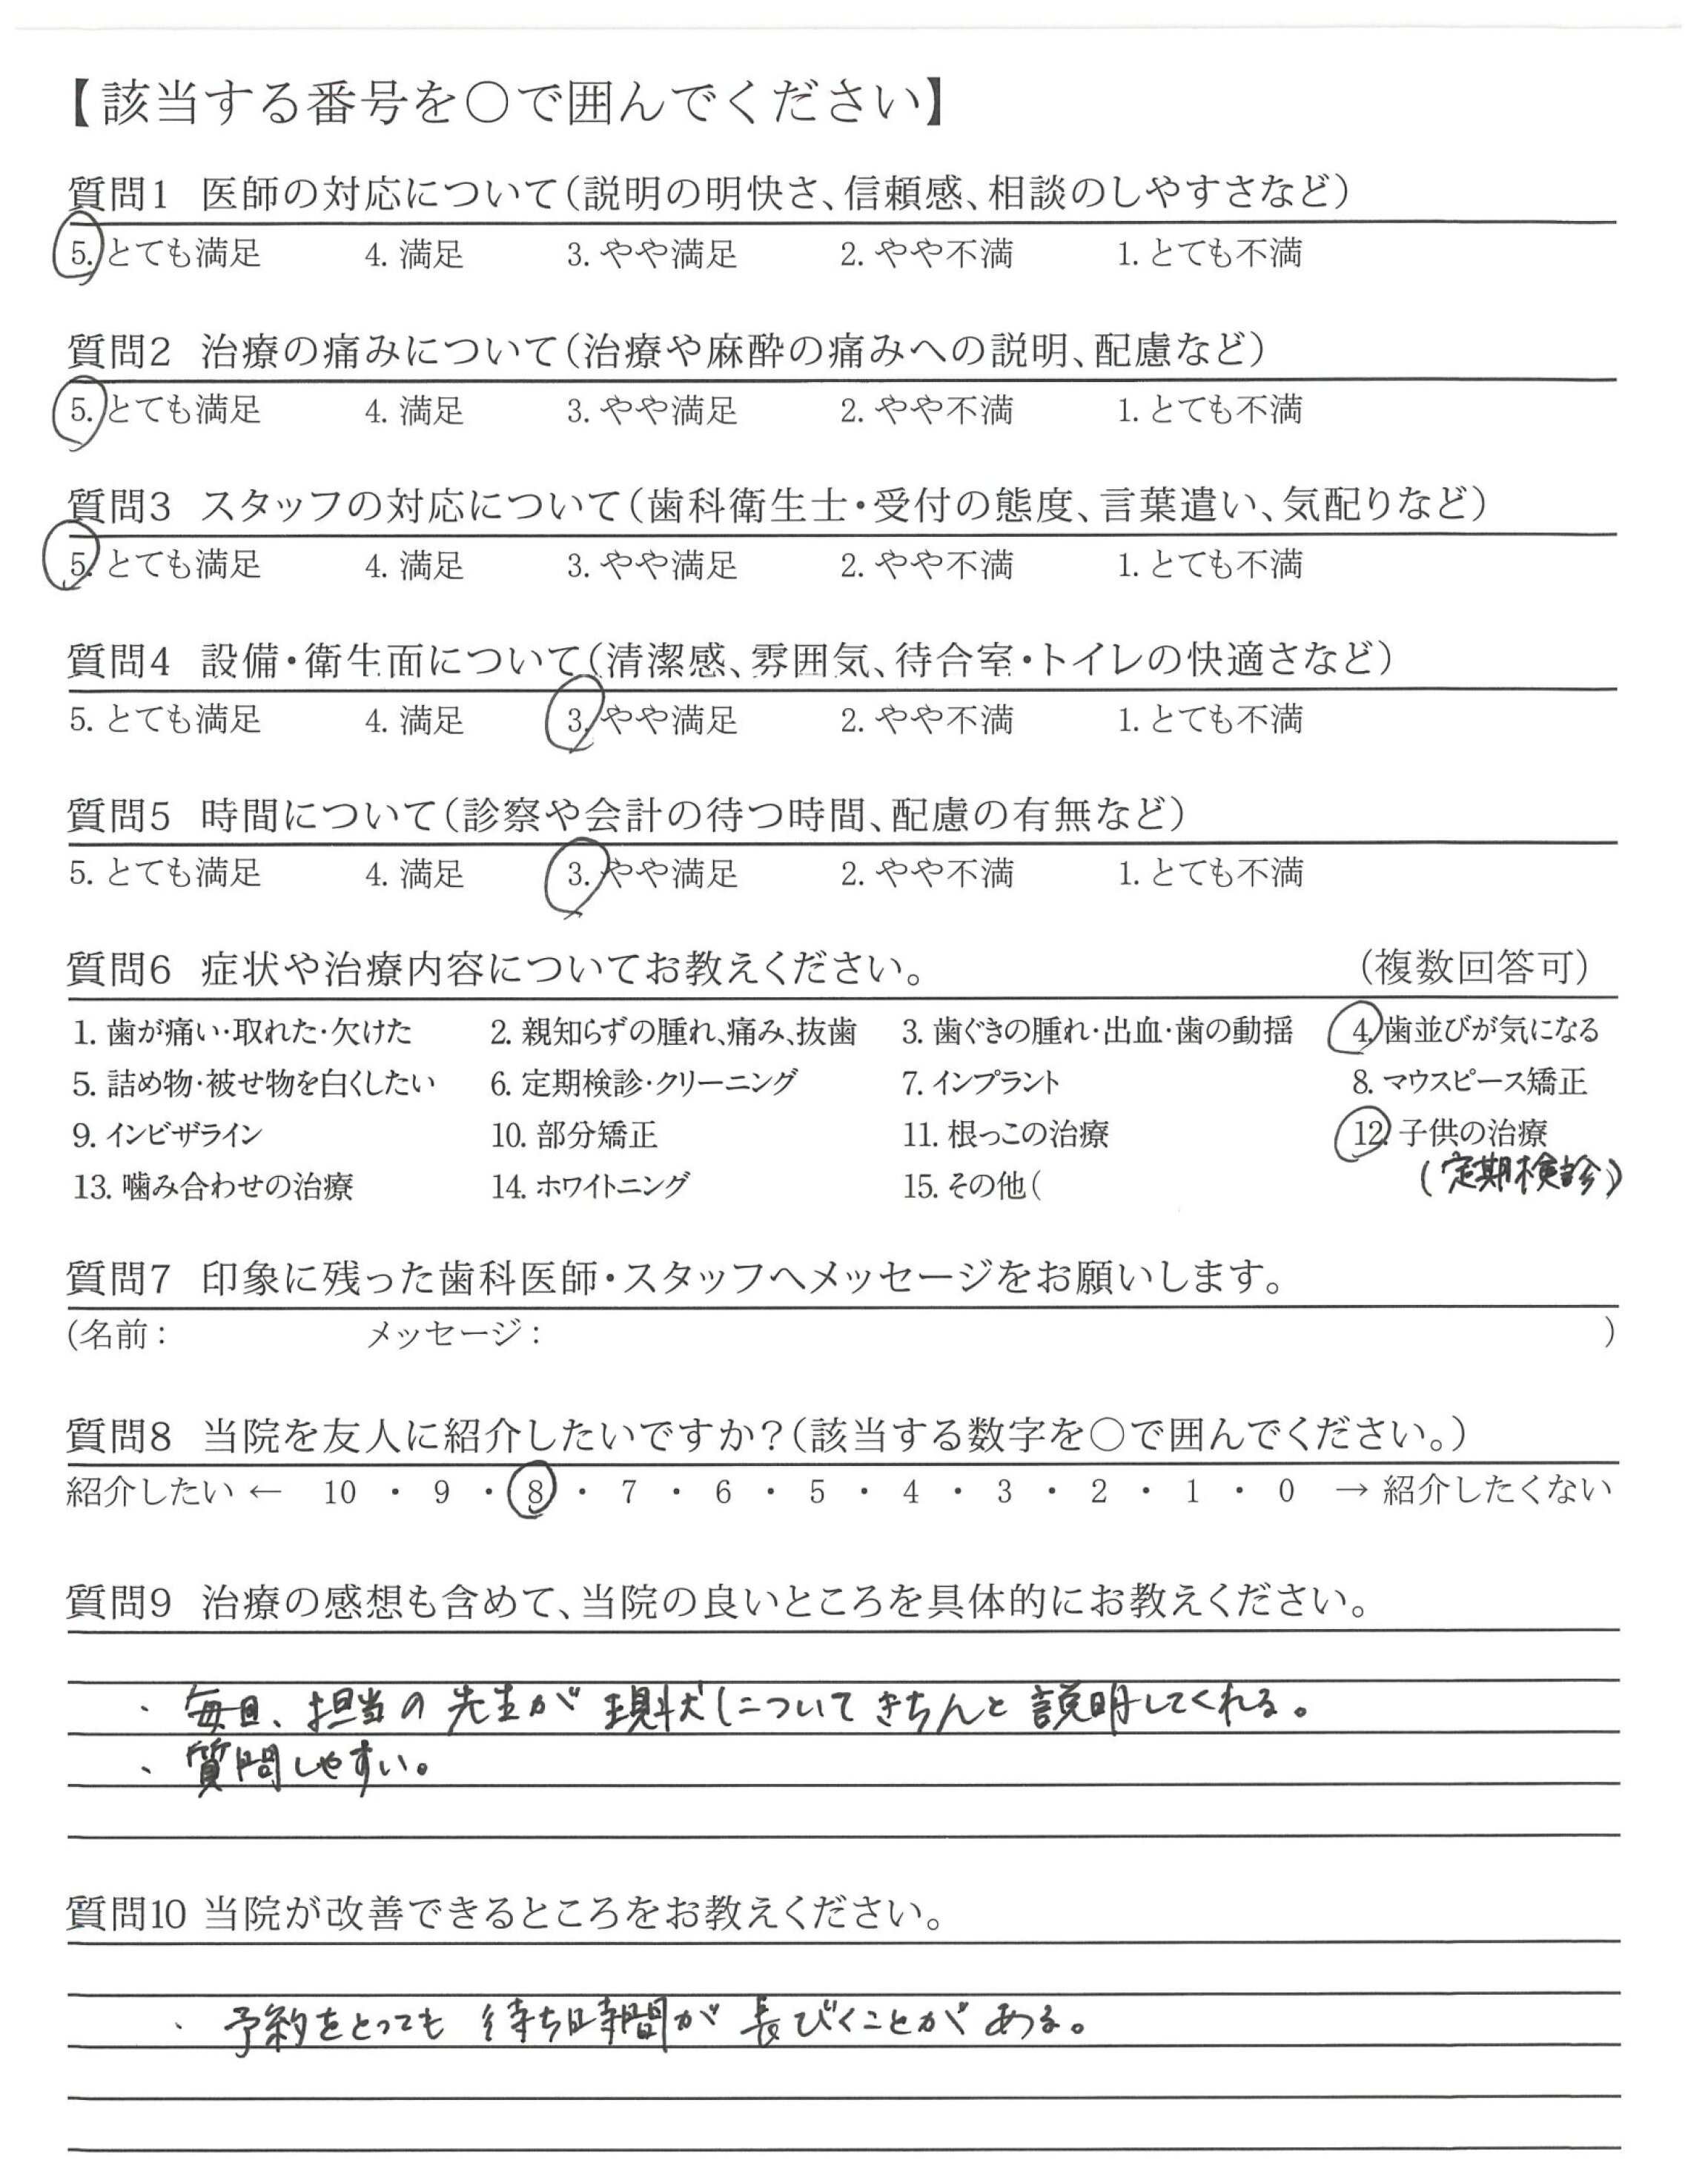 【該当する番号を〇で囲んでください】
質問1 医師の対応について(説明の明快さ、信頼感、相談のしやすさなど)
5. とても満足 4. 満足 3. やや満足 2. やや不満 1. とても不満
質問2 治療の痛みについて(治療や麻酔の痛みへの説明、配慮など)
5. とても満足 4. 満足 3. やや満足 2. やや不満 1. とても不満
質問3 スタッフの対応について(歯科衛生士・受付の態度、言葉遣い、気配りなど)
5. とても満足 4. 満足 3. やや満足 2. やや不満 1. とても不満
質問4 設備・衛生面について(清潔感、雰囲気、待合室・トイレの快適さなど)
5. とても満足 4. 満足 3. やや満足 2. やや不満 1. とても不満
質問5 時間について(診察や会計の待つ時間、配慮の有無など)
5. とても満足 4. 満足 3. やや満足 2. やや不満 1. とても不満
質問6 症状や治療内容についてお教えください。 (複数回答可)
1. 歯が痛い・取れた・欠けた 2. 親知らずの腫れ、痛み、抜歯 3. 歯ぐきの腫れ・出血・歯の動揺 4. 歯並びが気になる
5. 詰め物・被せ物を白くしたい 6. 定期検診・クリーニング 7. インプラント 8. マウスピース矯正
9. インビザライン 10. 部分矯正 11. 根っこの治療 12. 子供の治療
13. 噛み合わせの治療 14. ホワイトニング 15. その他( (定期検診)
質問7 印象に残った歯科医師・スタッフへメッセージをお願いします。
(名前: メッセージ: )
質問8 当院を友人に紹介したいですか?(該当する数字を〇で囲んでください。)
紹介したい ← 10 ・ 9 ・ 8 ・ 7 ・ 6 ・ 5 ・ 4 ・ 3 ・ 2 ・ 1 ・ 0 → 紹介したくない
質問9 治療の感想も含めて、当院の良いところを具体的にお教えください。
・ 毎回、担当の先生が現状についてきちんと説明してくれる。
・ 質問しやすい。
質問10 当院が改善できるところをお教えください。
・ 予約をとっても待ち時間が長びくことがある。